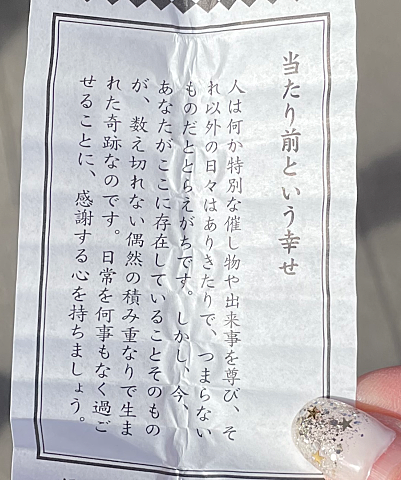 当たり前という幸せ
人は何か特別な催し物や出来事を尊び、そ
れ以外の日々はありきたりで、つまらない
ものだととらえがちです。しかし、今、
あなたがここに存在していることそのもの
が、数え切れない偶然の積み重なりで生ま
れた奇跡なのです。日常を何事もなく過ご
せることに、感謝する心を持ちましょう。